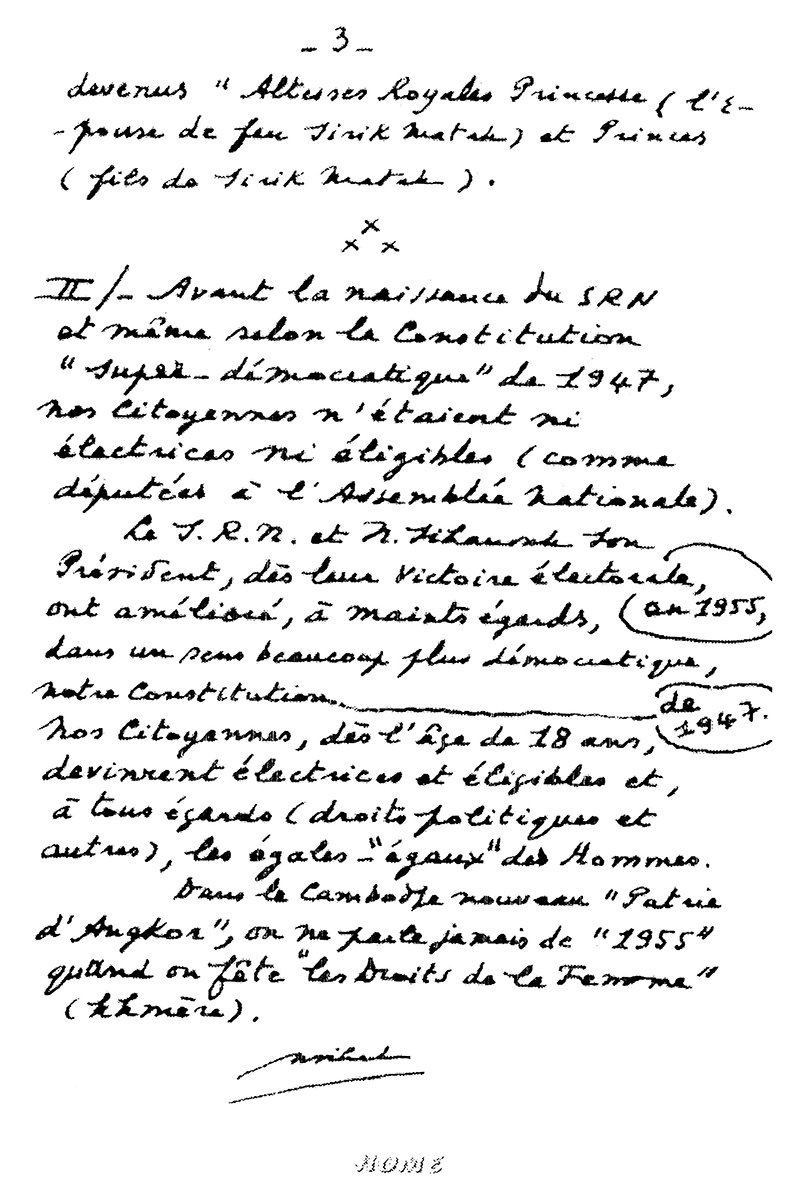 - 3 -
devenus "Altesses Royales Princesse (l'É-
-pouse de feu Sirik Matak) et Princes
(fils de Sirik Matak).
x
x x
II/- Avant la naissance du SRN
et même selon la Constitution
"super-démocratique" de 1947,
nos Citoyennes n'étaient ni
électrices ni éligibles (comme
députées à l'Assemblée Nationale).
Le S.R.N. et N. Sihanouk son
Président, dès leur victoire électorale,
ont amélioré, à maints égards, (en 1955,
dans un sens beaucoup plus démocratique,
notre Constitution de 1947.
Nos Citoyennes, dès l'âge de 18 ans,
devinrent électrices et éligibles et,
à tous égards (droits politiques et
autres), les égales - "égaux" des Hommes.
Dans le Cambodge nouveau "Patrie
d'Angkor", on ne parle jamais de "1955"
quand on fête "les Droits de la Femme"
(khmère).
HOME